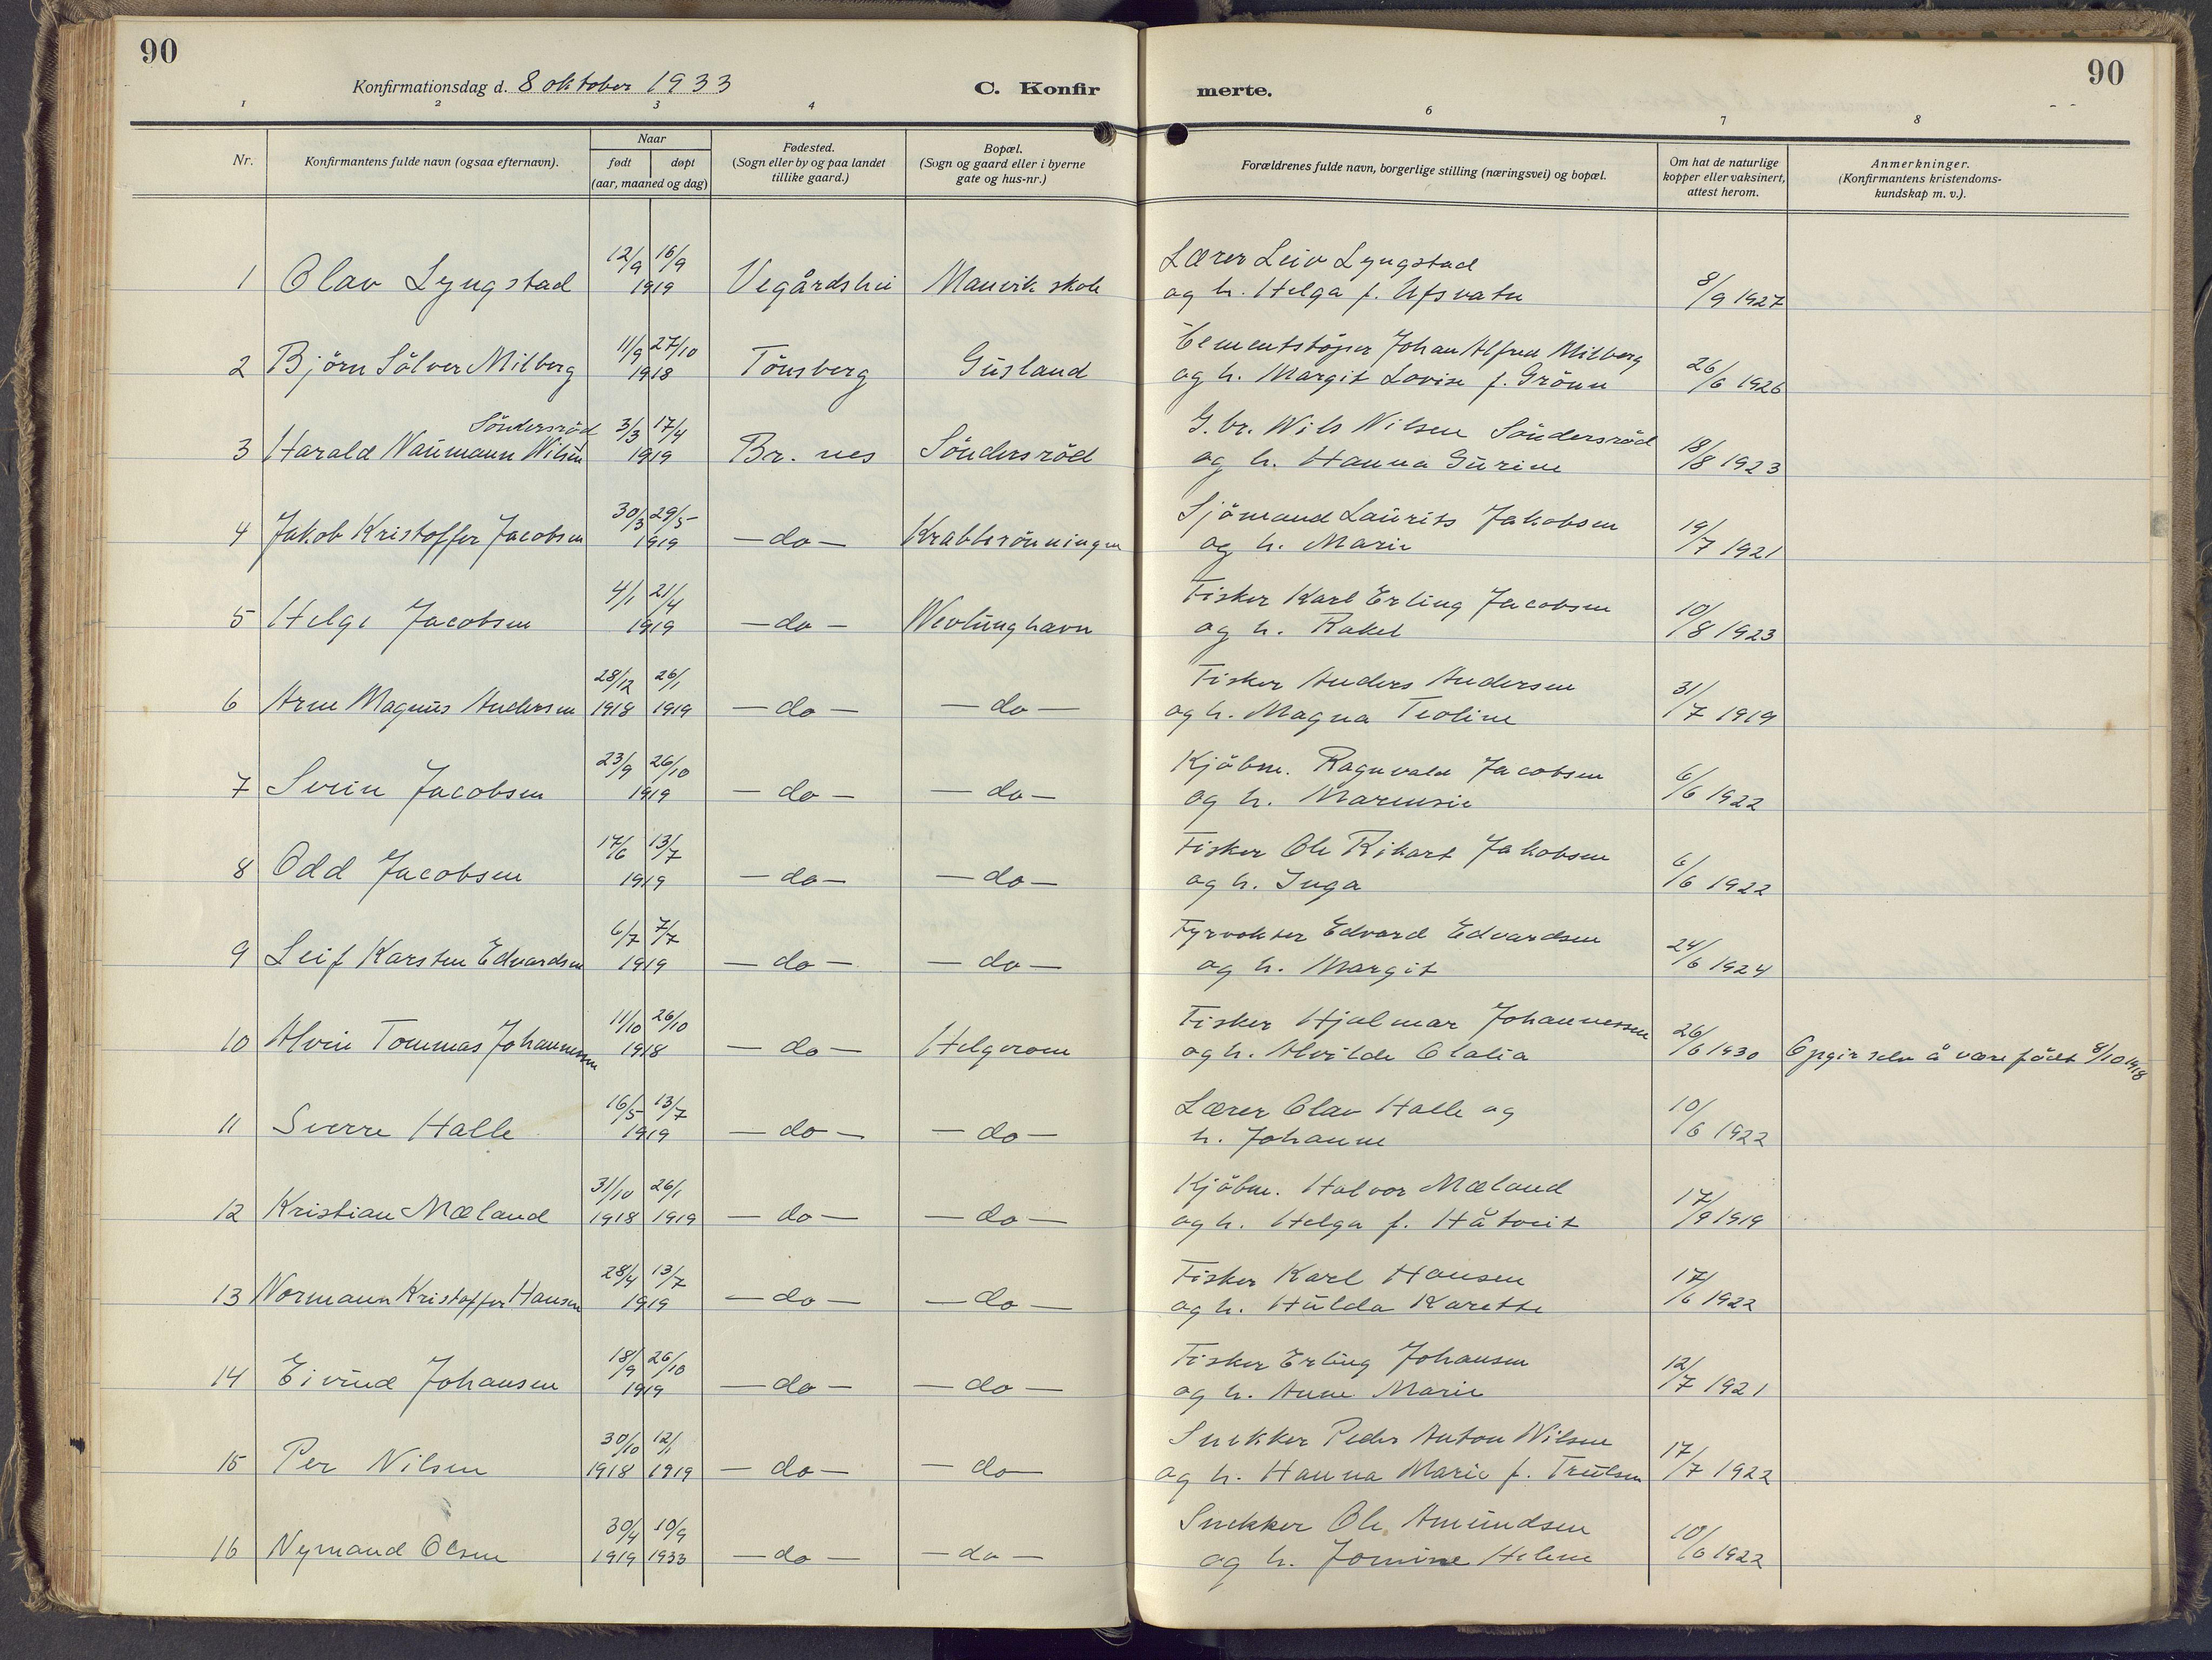 90
90
Konfirmationsdag d. 8 oktober 1933
C. Konfir merte.
1 2 3 4 6 7 8
Nr.
Konfirmantens fulde navn (ogsaa efternavn).
Naar
født døpt
(aar, maaned og dag)
Fødested.
(Sogn eller by og paa landet
tillike gaard.)
Bopæl.
(Sogn og gaard eller i byerne
gate og hus-nr.)
Forældrenes fulde navn, borgerlige stilling (næringsvei) og bopæl.
Om hat de naturlige
kopper eller vaksinert,
attest herom.
Anmerkninger.
(Konfirmantens kristendoms-
kundskap m. v.).
12/9 16/9 Lærer Leiv Lyngstad
1 Olav Lyngstad 1919 Vegårdshei Mauvik skole og h. Helga f. Ufsvatn 8/9 1927
11/9 27/10 Cementstøper Johan Alfred Milberg
2 Björn Sölver Milberg 1918 Tönsberg Gusland og h. Margit Lovise f. Grönn 26/6 1926
Söndersröd 3/3 17/4 G.br. Nils Nilsen Söndersröd
3 Harald Naumann Nilsen 1919 Br. nes Söndersröd og h. Hanna Gurine 18/8 1923
30/3 29/5 Sjömand Laurits Jakobsen
4 Jakob Kristoffer Jacobsen 1919 — do — Krabberönningen og h. Marie 19/7 1921
4/1 21/4 Fisker Karl Erling Jacobsen
5 Helge Jacobsen 1919 — do — Nevlunghavn og h. Rakel 10/8 1923
28/12 26/1 Fisker Anders Andersen
6 Arne Magnus Andersen 1918 1919 — do — — do — og h. Magna Teoline 31/7 1919
23/9 26/10 Kjöbm. Ragnvald Jacobsen
7 Svein Jacobsen 1919 — do — — do — og h. Marensie 6/6 1922
17/6 13/7 Fisker Ole Rikart Jakobsen
8 Odd Jacobsen 1919 — do — — do — og h. Inga 6/6 1922
6/7 7/7 Fyrvokter Edvard Edvardsen
9 Leif Karsten Edvardsen 1919 — do — — do — og h. Margit 24/6 1924
11/10 26/10 Fisker Hjalmar Johannessen
10 Alvin Tommas Johannessen 1918 — do — Helgerom og h. Alvilde Olalia 26/6 1930 Opgir selv å være födt 8/10 1918
16/5 13/7 Lærer Olav Halle og
11 Sverre Halle 1919 — do — — do — h. Johanne 10/6 1922
31/10 26/1 Kjöbm. Halvor Mæland
12 Kristian Mæland 1918 1919 — do — — do — og h. Helga f. Håtveit 17/9 1919
28/4 13/7 Fisker Karl Hansen
13 Normann Kristoffer Hansen 1919 — do — — do — og h. Hulda Karette 17/6 1922
18/9 26/10 Fisker Erling Johansen
14 Eivind Johansen 1919 — do — — do — og h. Anne Marie 12/7 1921
30/10 12/1 Snekker Peder Anton Nilsen
15 Per Nilsen 1918 1919 — do — — do — og h. Hanna Marie f. Trulsen 17/7 1922
30/4 10/9 Snekker Ole Amundsen
16 Nymand Olsen 1919 1933 — do — — do — og h. Jomine Helene 10/6 1922